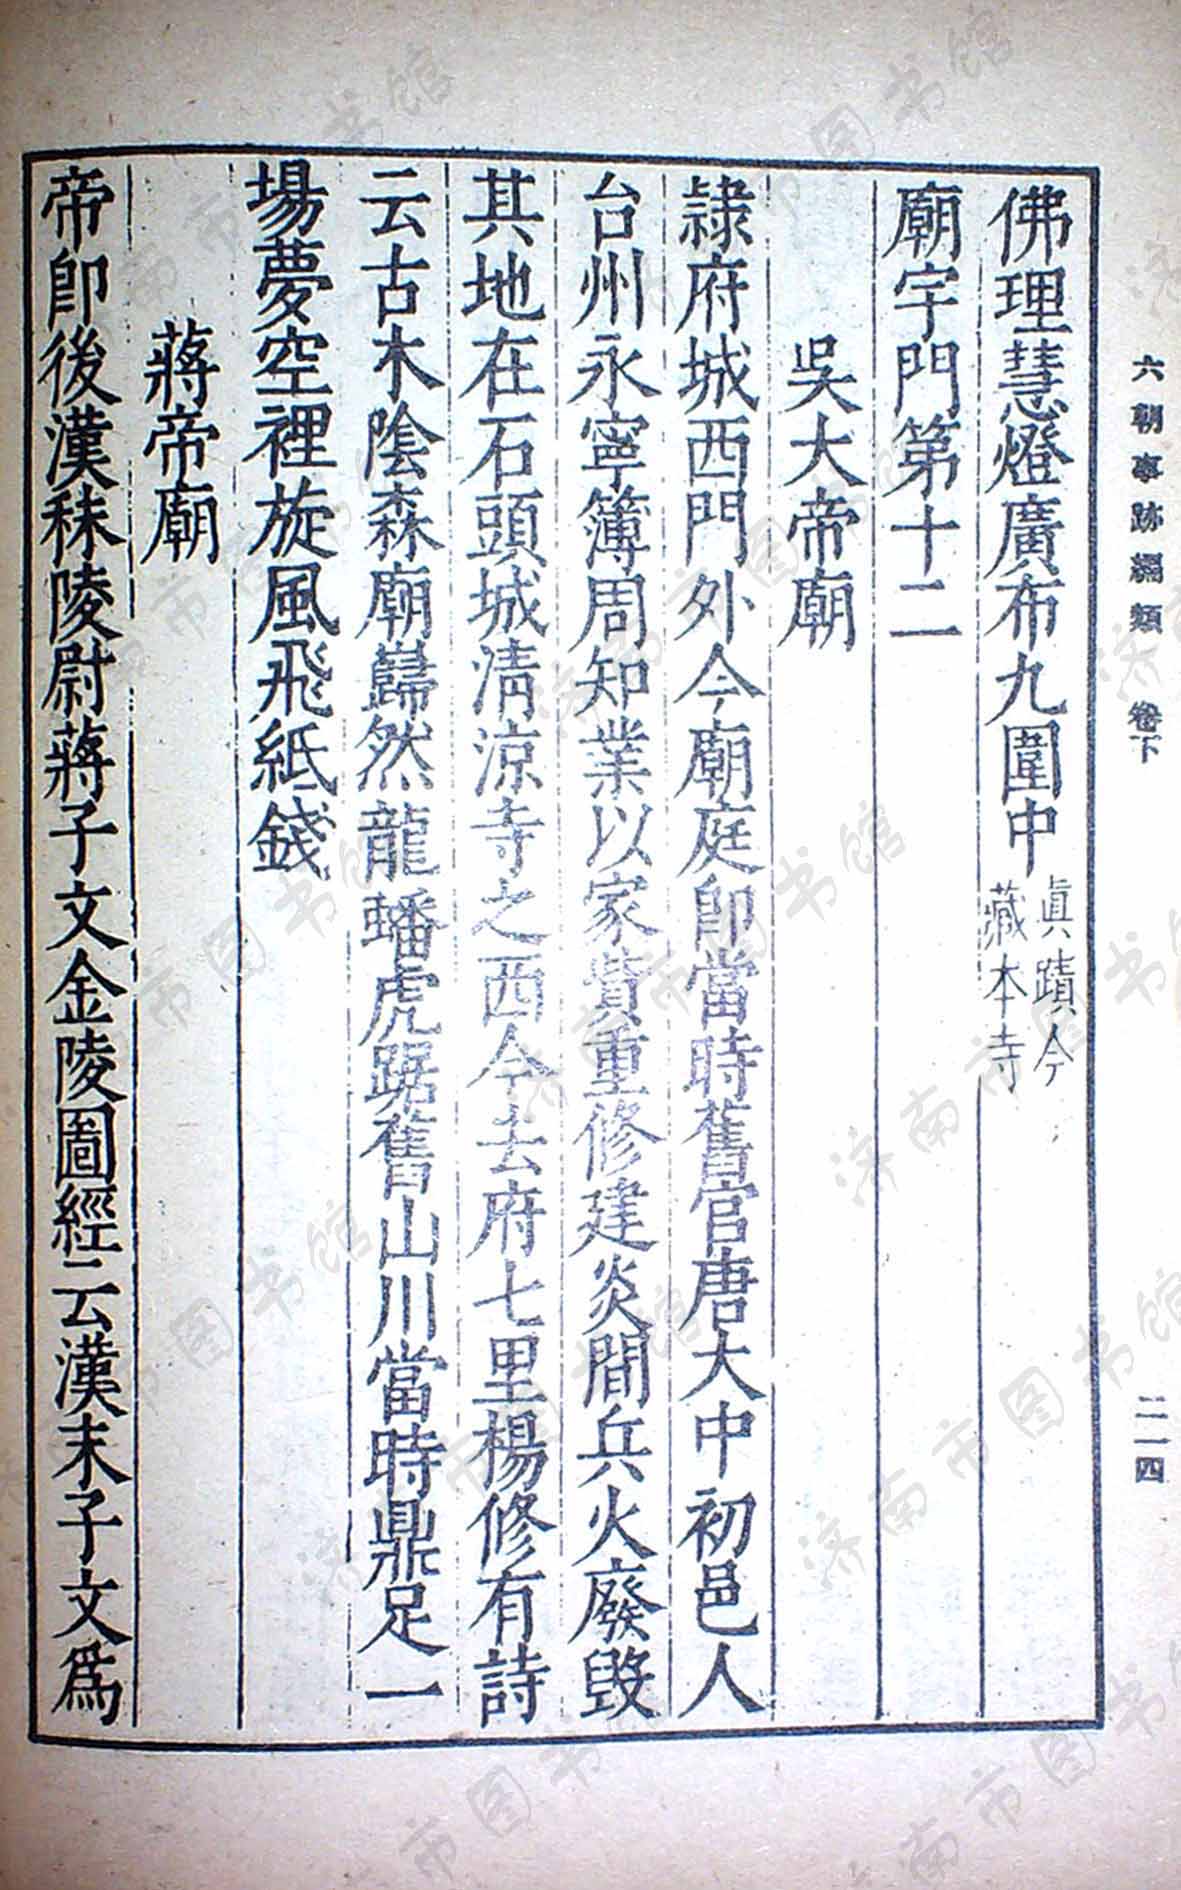 六朝事跡編類 卷下
二一四
佛理慧燈廣布九圍中眞蹟今藏本寺
廟宇門第十二
吳大帝廟
隷府城西門外今廟庭即當時舊官唐大中初邑人
台州永寧簿周知業以家貲重修建炎間兵火廢毀
其地在石頭城清涼寺之西今去府七里楊修有詩
云古木陰森廟巋然龍蟠虎踞舊山川當時鼎足一
場夢空裡旋風飛紙錢
蔣帝廟
帝即後漢秣陵尉蔣子文金陵圖經云漢末子文爲
济南市图书馆